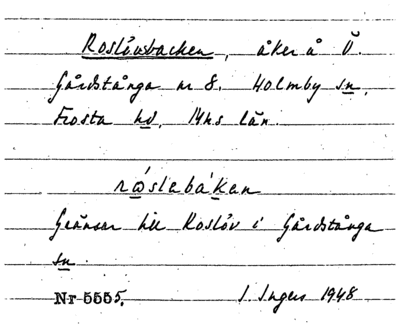 Roslövsbacken, åker å Ö.
Gårdstånga nr 8. Holmby sn,
Frosta hd, Mhs län.
rώslebàken
Gränsar till Roslöv i Gårdstånga
sn.
Nr 5555. I. Ingers 1948